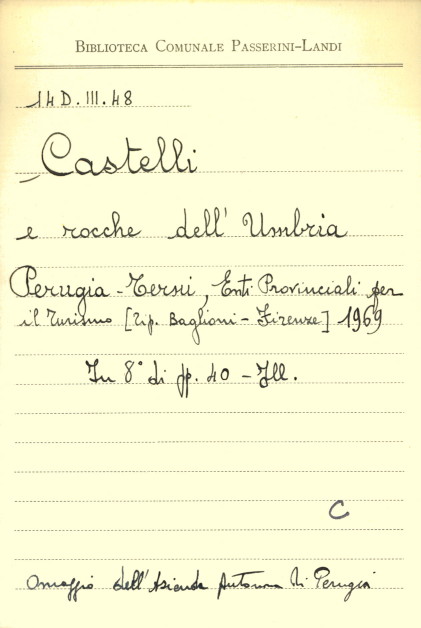 BIBLIOTECA COMUNALE PASSERINI-LANDI
14 D. III. 48
Castelli
e rocche dell' Umbria
Perugia - Terni, Enti Provinciali per
il Turismo [Tip. Baglioni - Firenze] 1969
In 8° di pp. 40 - Ill.
C
Omaggio dell'Azienda Autonoma di Perugia